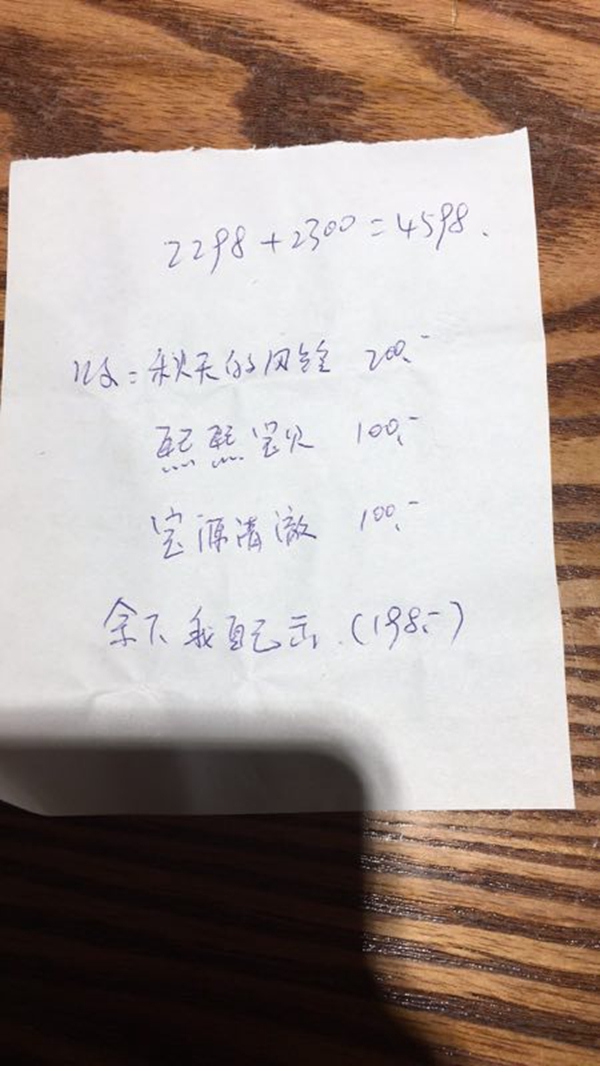 2298+2300=4598.
收:秋天的风铃 200.-
熙熙宝贝 100.-
宝源清澈 100.-
余下我自己出.(198.-)